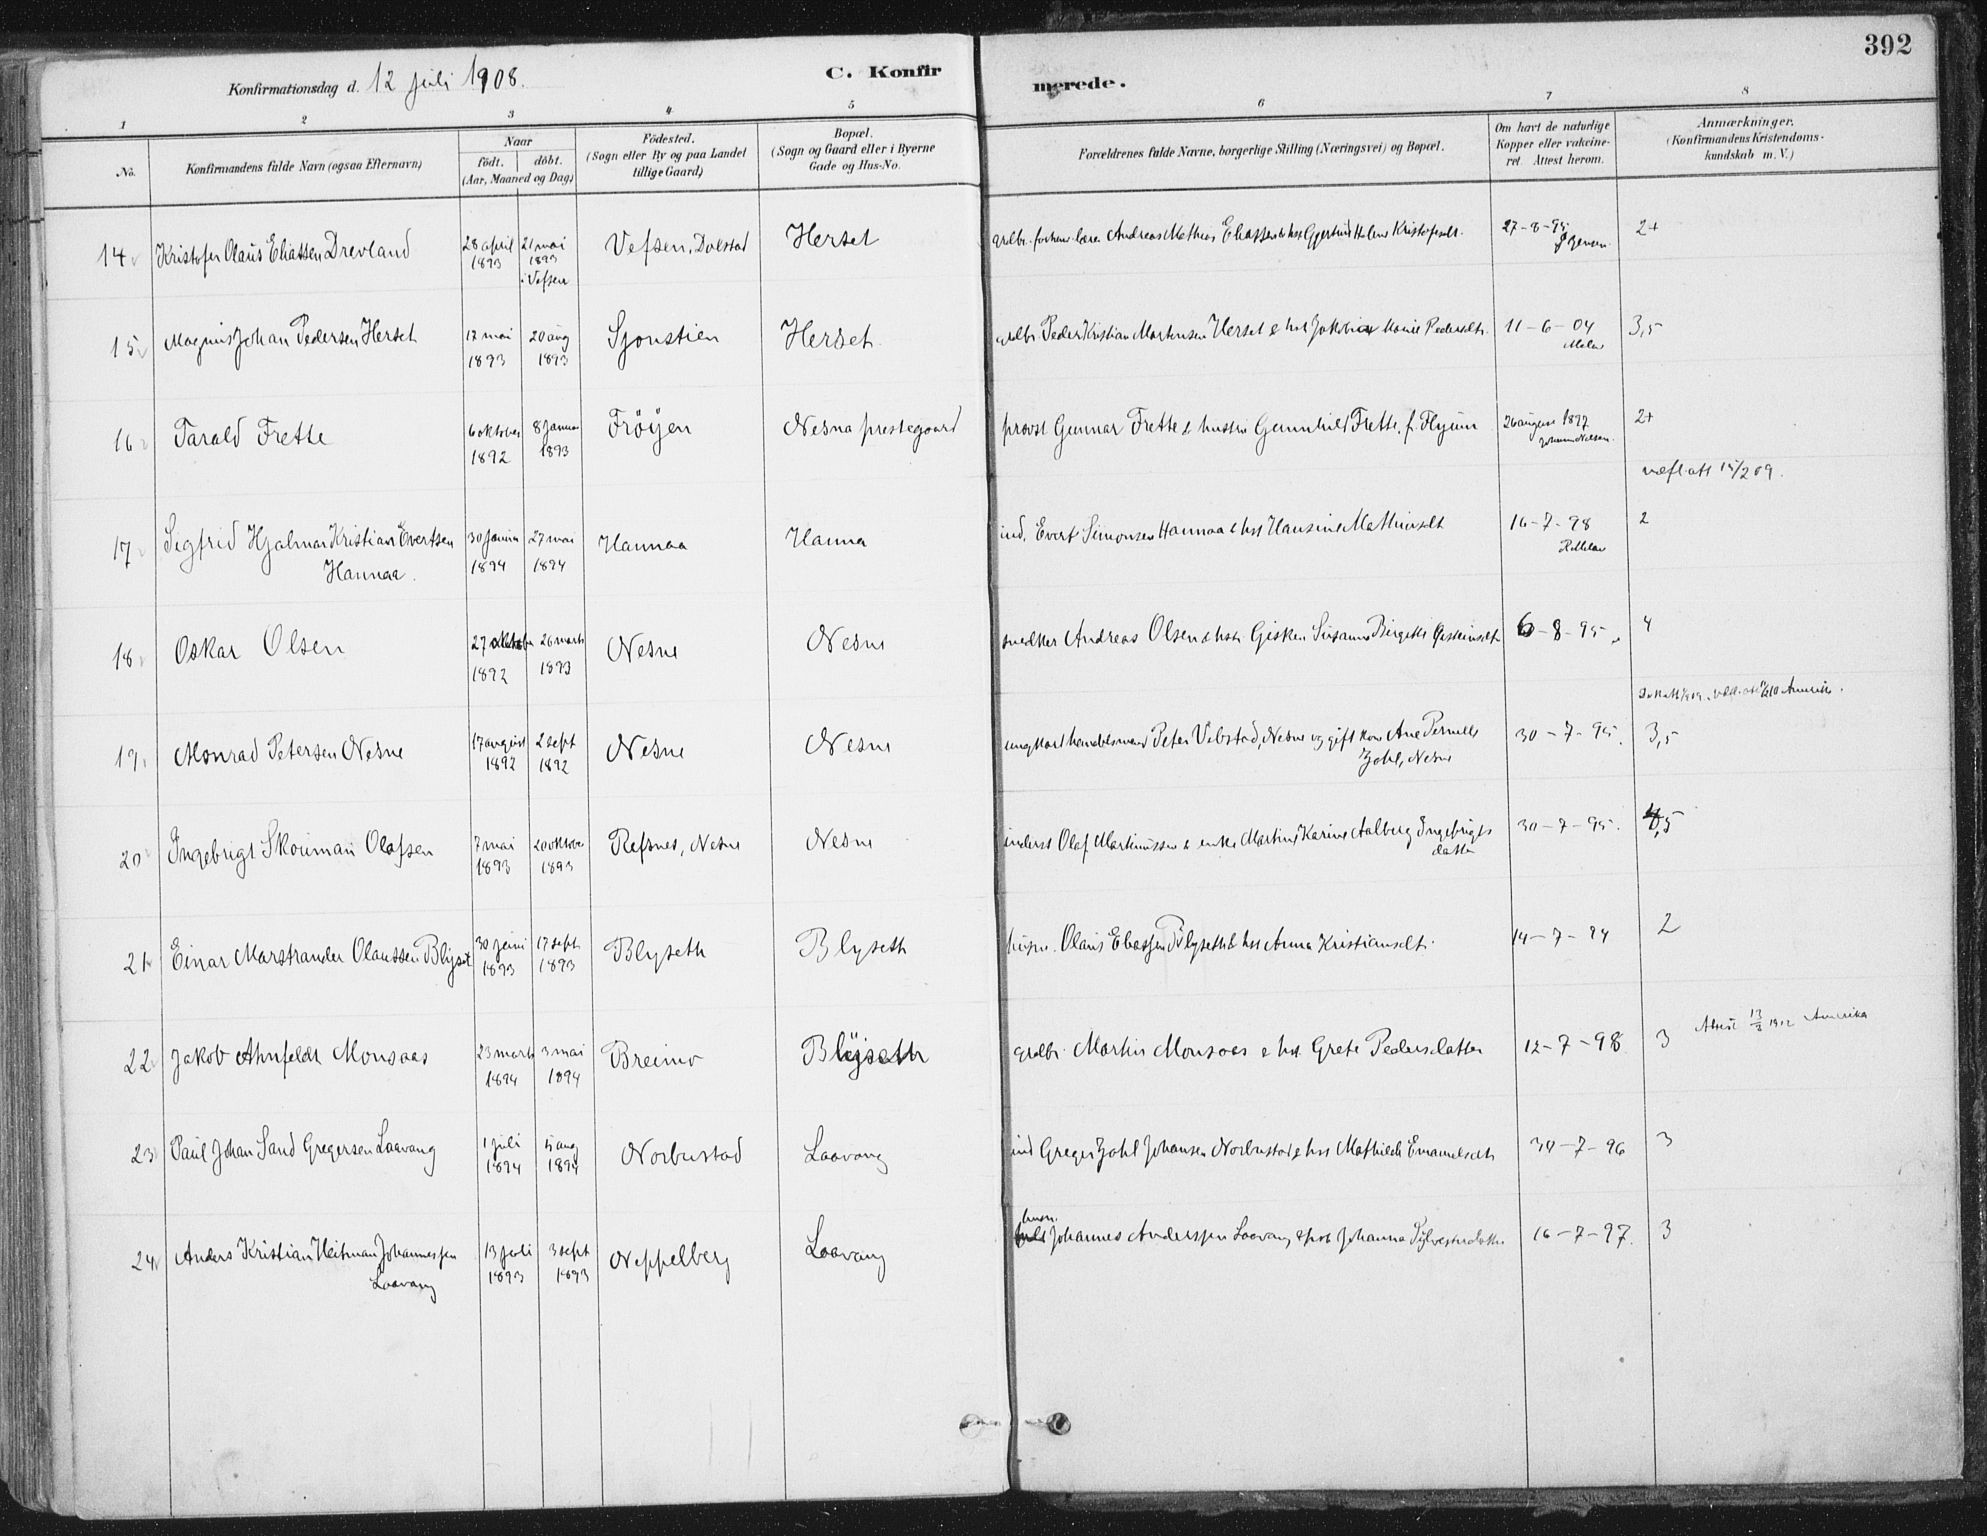 392
Konfirmationsdag d. 12 juli 1908.
C. Konfirmerede.
1 2 3 4 5 6 7 8
No. Konfirmandens fulde Navn (ogsaa Efternavn) Naar födt. döbt. (Aar, Maaned og Dag) Födested. (Sogn eller By og paa Landet tillige Gaard) Bopæl. (Sogn og Gaard eller i Byerne Gade og Hus-No. Forældrenes fulde Navne, borgerlige Stilling (Næringsvei) og Bopæl. Om havt de naturlige Kopper eller vakcineret. Attest herom. Anmærkninger. (Konfirmandens Kristendomskundskab m. V.)
14 Kristofer Olaus Eliassen Drevland 28 april 1893 21 mai 1893 i Vefsen Vefsen, Dolstad Herset Andreas Mathias Eliassen & hst Gjertrud Helene Kristofersdt. 27-8-95 2+
15 Magnus Johan Pedersen Herset 17 mai 1893 20 aug 1893 Sjonstien Herset. Peder Kristian Martensen Herset & hst Jakobine Marie Pedersdt. 11-6-04 3,5
16 Tarald Frette 6 oktober 1892 8 januar 1893 Fröyen Nesna prestegaard provst Gunnar Frette & hustru Gunnhild Frette, f. Flyum 26 august 1897 2+
17 Sigfrid Hjalmar Kristian Evertsen Hannaa. 30 januar 1894 27 mai 1894 Hannaa Hanna ind. Evert Simonsen Hannaa & hst Hansine Mathiasdt 16-7-98 2
18 Oskar Olsen 27 oktober 1892 26 marts 1893 Nesne Nesne snedker Andreas Olsen & hstr Gisken Susanna Birgitte 6-8-95 4
19 Monrad Petersen Nesne 17 august 1892 2 sept 1892 Nesne Nesne ungkarl handelsmand Peter Vebstad, Nesne og gift kone Ane Pernille Zahl, Nesne 30-7-95. 3,5
20 Ingebrigt Skouman Olafsen 7 mai 1893 20 oktober 1893 Refsnes, Nesne Nesne inderst Olaf Martinussen & enke Martine Karine Aalberg Ingebrigtsdatter 30-7-95.
21 Einar Marstrander Olaussen Blyset 30 juni 1893 17 sept 1893 Blyseth Blyseth husm. Olaus Eliassen Blyseth & hst Anna Kristiansdt. 14-7-94 2
22 Jakob Ahnfeldt Monsaas 23 marts 1894 3 mai 1894 Breimo Blyseth grdbr. Martin Monsaas & hst. Grete Pedersdatter 12-7-98 3 1912 Amerika
23 Paul Johan Sand Gregersen Laavang 1 juli 1894 5 aug 1894 Norbustad Laavang ind Greger Zahl Johansen Norbustad & hst Mathilde Emanuelsdt. 30-7-96 3
24 Anders Kristian Heitman Johannessen Laavang 13 juli 1893 3 sept 1893 Neppelberg Laavang husm. Johannes Anderssen Laavang Johanna Sylvesterdatter 16-7-97. 3